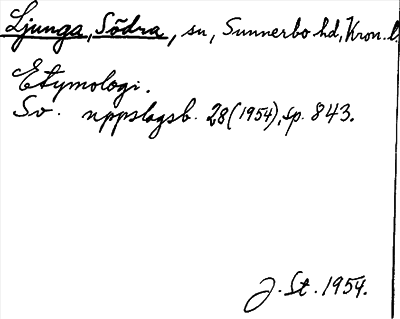 Ljunga, Södra, sn, Sunnerbo hd, Kron. l.
Etymologi.
Sv. uppslagsb. 28 (1954), sp. 843.
J. St. 1954.